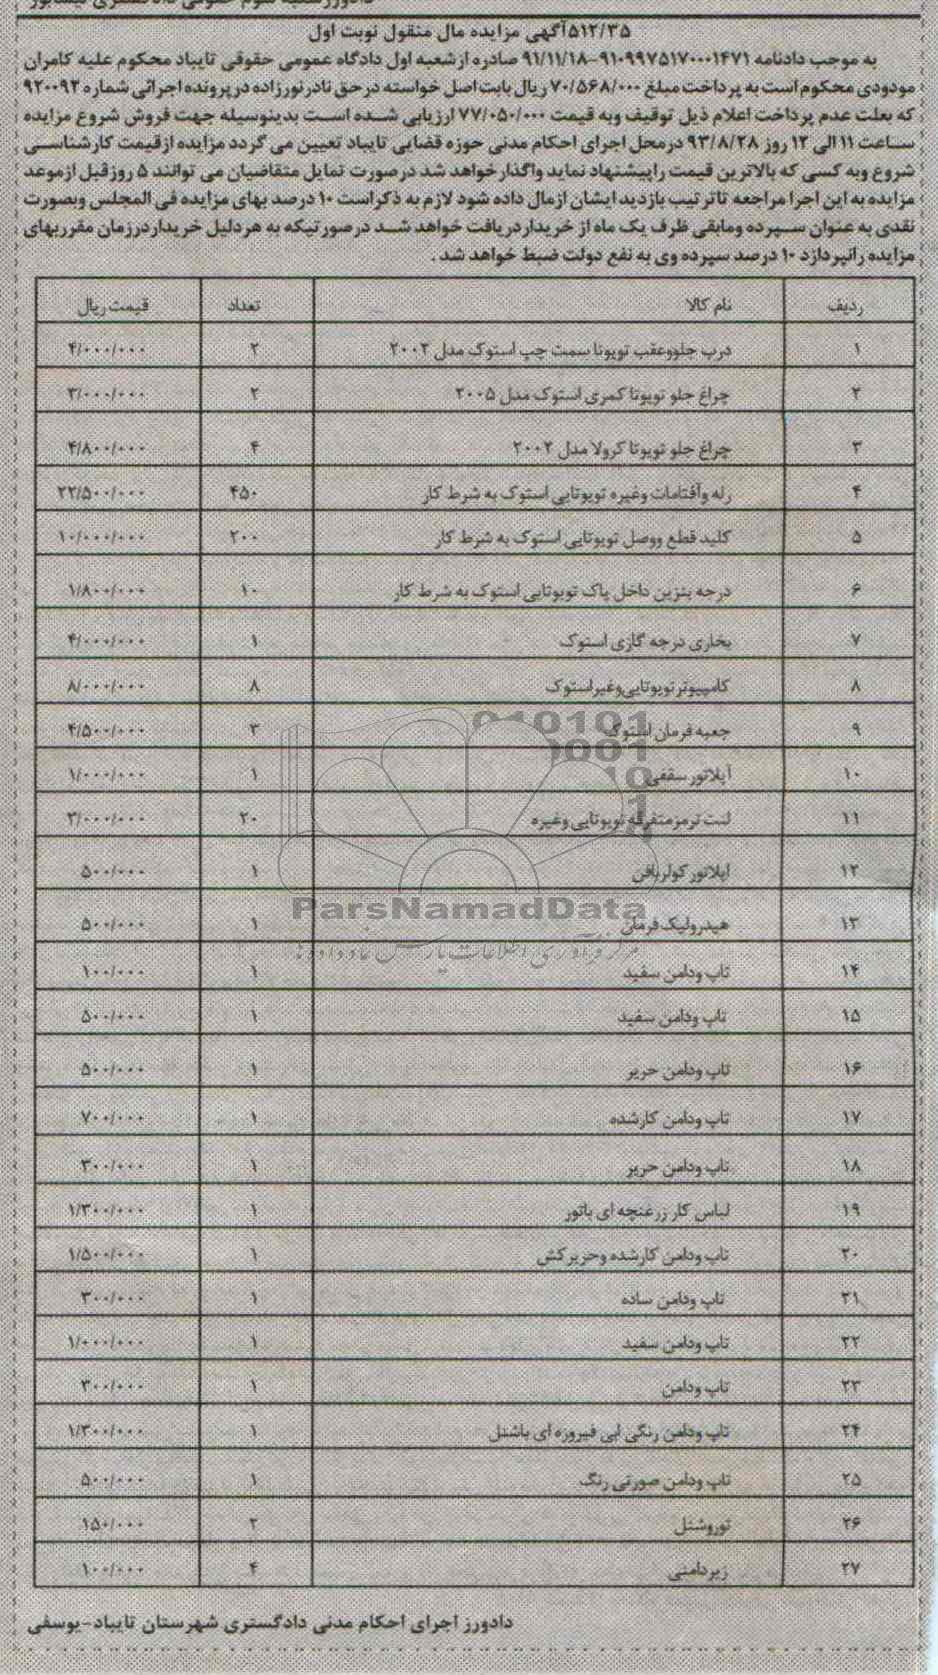 ۵۱۲/۳۵آگهی مزایده مال منقول نوبت اول
به موجب دادنامه ۹۱۰۹۹۷۵۱۷۰۰۰۱۴۷۱-۹۱/۱۱/۱۸ صادره ازشعبه اول دادگاه عمومی حقوقی تایباد محکوم علیه کامران
مودودی محکوم است به پرداخت مبلغ ۷۰/۵۶۸/۰۰۰ ریال بابت اصل خواسته درحق نادرنورزاده درپرونده اجرائی شماره ۹۲۰۰۹۲
که بعلت عدم پرداخت اعلام ذیل توقیف وبه قیمت ۷۷/۰۵۰/۰۰۰ ارزیابی شده است بدینوسیله جهت فروش شروع مزایده
ساعت ۱۱ الی ۱۲ روز ۹۳/۸/۲۸ درمحل اجرای احکام مدنی حوزه قضایی تایباد تعیین می گردد مزایده ازقیمت کارشناسی
شروع وبه کسی که بالاترین قیمت راپیشنهاد نماید واگذارخواهد شد درصورت تمایل متقاضیان می توانند ۵ روزقبل ازموعد
مزایده به این اجرا مراجعه تاترتیب بازدید ایشان ازمال داده شود لازم به ذکراست ۱۰ درصد بهای مزایده فی المجلس وبصورت
نقدی به عنوان سپرده ومابقی ظرف یک ماه از خریداردریافت خواهد شد درصورتیکه به هردلیل خریداردرزمان مقرربهای
مزایده رانپردازد ۱۰ درصد سپرده وی به نفع دولت ضبط خواهد شد .
ردیف نام کالا تعداد قیمت ریال
۱ درب جلووعقب تویوتا سمت چپ استوک مدل ۲۰۰۲ ۲ ۴/۰۰۰/۰۰۰
۲ چراغ جلو تویوتا کمری استوک مدل ۲۰۰۵ ۲ ۳/۰۰۰/۰۰۰
۳ چراغ جلو تویوتا کرولا مدل ۲۰۰۲ ۴ ۴/۸۰۰/۰۰۰
۴ رله وآفتامات وغیره تویوتایی استوک به شرط کار ۴۵۰ ۲۲/۵۰۰/۰۰۰
۵ کلید قطع ووصل تویوتایی استوک به شرط کار ۲۰۰ ۱۰/۰۰۰/۰۰۰
۶ درجه بنزین داخل پاک تویوتایی استوک به شرط کار ۱۰ ۱/۸۰۰/۰۰۰
۷ بخاری درجه گازی استوک ۱ ۴/۰۰۰/۰۰۰
۸ کامپیوترتویوتایی‌وغیراستوک ۸ ۸/۰۰۰/۰۰۰
۹ جعبه فرمان استوک ۳ ۴/۵۰۰/۰۰۰
۱۰ آپلاتور سقفی ۱ ۱/۰۰۰/۰۰۰
۱۱ لنت ترمزمتفرقه تویوتایی وغیره ۲۰ ۳/۰۰۰/۰۰۰
۱۲ اپلاتور کولر ۱ ۵۰۰/۰۰۰
ParsNamadData
۱۳ هیدرولیک فرمان ۱ ۵۰۰/۰۰۰
مرکز فرآوری اطلاعات پارس نماد داده ها
۱۴ تاپ ودامن سفید ۱ ۱۰۰/۰۰۰
۱۵ تاپ ودامن سفید ۱ ۵۰۰/۰۰۰
۱۶ تاپ ودامن حریر ۱ ۵۰۰/۰۰۰
۱۷ تاپ ودامن کارشده ۱ ۷۰۰/۰۰۰
۱۸ تاپ ودامن حریر ۱ ۳۰۰/۰۰۰
۱۹ لباس کار زرغنچه ای باتور ۱ ۱/۳۰۰/۰۰۰
۲۰ تاپ ودامن کارشده وحریرکش ۱ ۱/۵۰۰/۰۰۰
۲۱ تاپ ودامن ساده ۱ ۳۰۰/۰۰۰
۲۲ تاپ ودامن سفید ۱ ۱/۰۰۰/۰۰۰
۲۳ تاپ ودامن ۱ ۳۰۰/۰۰۰
۲۴ تاپ ودامن رنگی آبی فیروزه ای باشنل ۱ ۱/۳۰۰/۰۰۰
۲۵ تاپ ودامن صورتی رنگ ۱ ۵۰۰/۰۰۰
۲۶ توروشنل ۲ ۱۵۰/۰۰۰
۲۷ زیردامنی ۴ ۱۰۰/۰۰۰
دادورز اجرای احکام مدنی دادگستری شهرستان تایباد-یوسفی